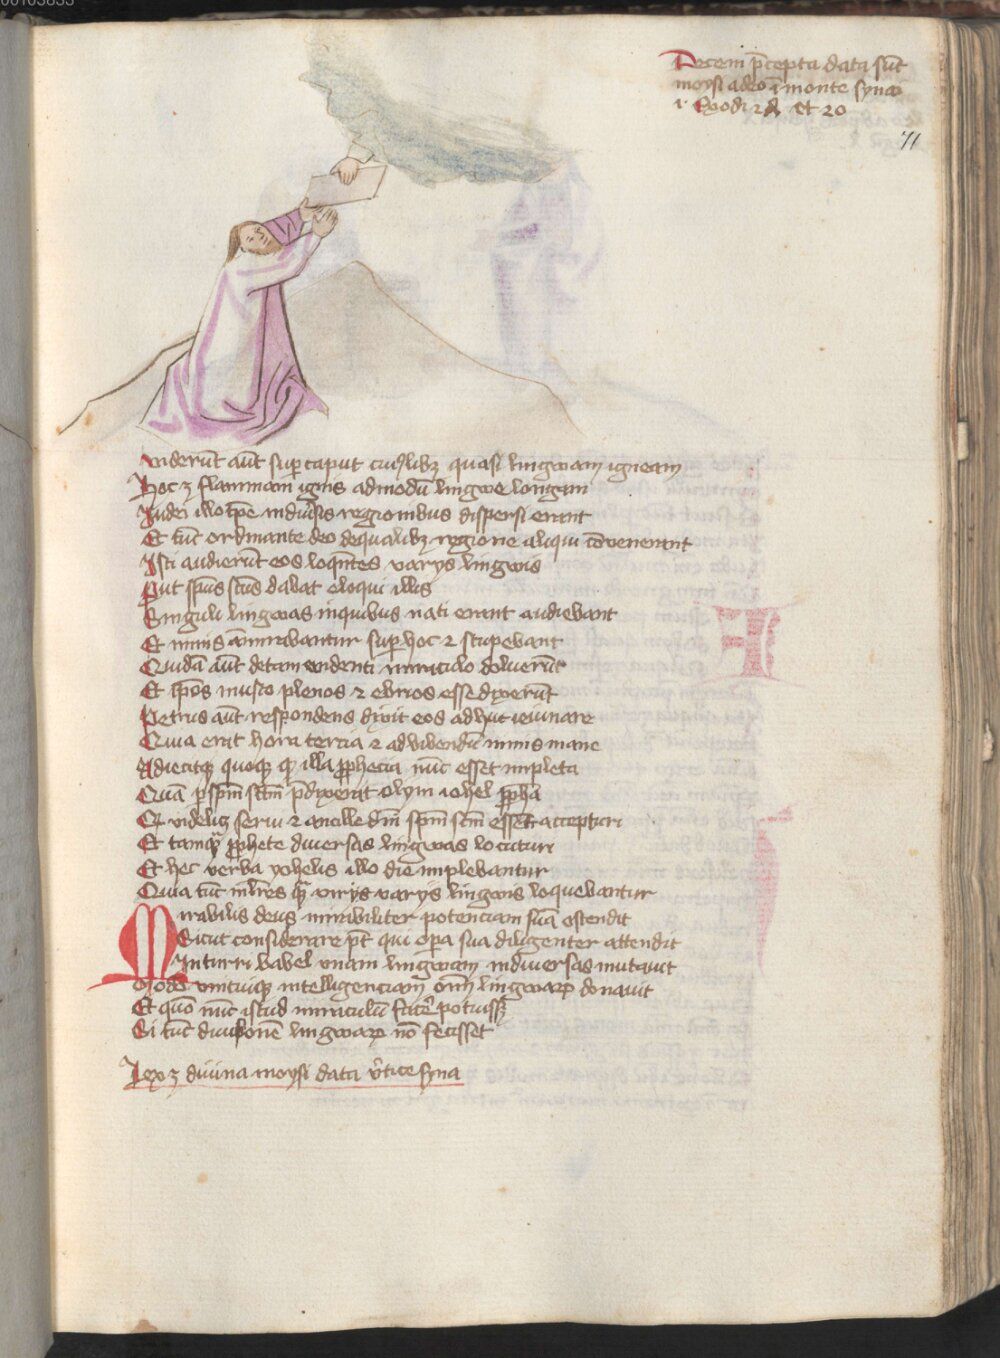 00103833
Decem p̄cepta data sūt
moysi a deo ī monte synai
Exodi 24 et 20
71
Viderūt aūt sup caput cuiꝰlibꝫ quasi lingwam igneam
Hoc ꝫ flammam ignis ad modū lingwe longam
Iudei illo tp̄e in diūsis regionibus dispersi erant
Et tūc ordinante deo de qualibꝫ regione aliqui ꝯvenerant
Isti audierūt eos loqn̄tes varys lingwis
Put sp̄us sc̄us dabat eloqui illis
Singuli lingwas in quibus nati erant audiebant
Et nimis āmirabantur sup hoc ⁊ stupebant
Quidā aūt de tam evidenti miraculo doluerūt
Et ip̄os musto plenos ⁊ ebrios esse dixerūt
Petrus aūt respondens dixit eos adhuc ieiunare
Quia erat hora tercia ⁊ ad bibendū nimis mane
Adiecitqꝫ quoqꝫ qꝫ illa ꝓphecia nūc esset impleta
Quā p sp̄m sc̄m p̄dixerat olym iohel ꝓpha
Qꝫ videlicꝫ serui ⁊ ancille dn̄i sp̄m sc̄m essent accepturi
Et tamqꝫ ꝓphete diuersas lingwas locuturi
Et hec verba yohelis illo die implebantur
Quia tūc ml̄res qꝫ virys varys lingwis loquebantur
Mirabilis deus mirabiliter potenciam suā ostendit
Sicut considerare pt̄ qui opa sua diligenter attendit
In turri babel vnam lingwam in diuersas mutauit
Modo vnicuiqꝫ intelligenciam om̄ lingwarꝝ donauit
Et quō nūc istud miraculū fac̄e potuissꝫ
Si tūc diuisionē lingwarꝝ nō fecisset
Lex ꝫ diuina moysi data v̄tice syna